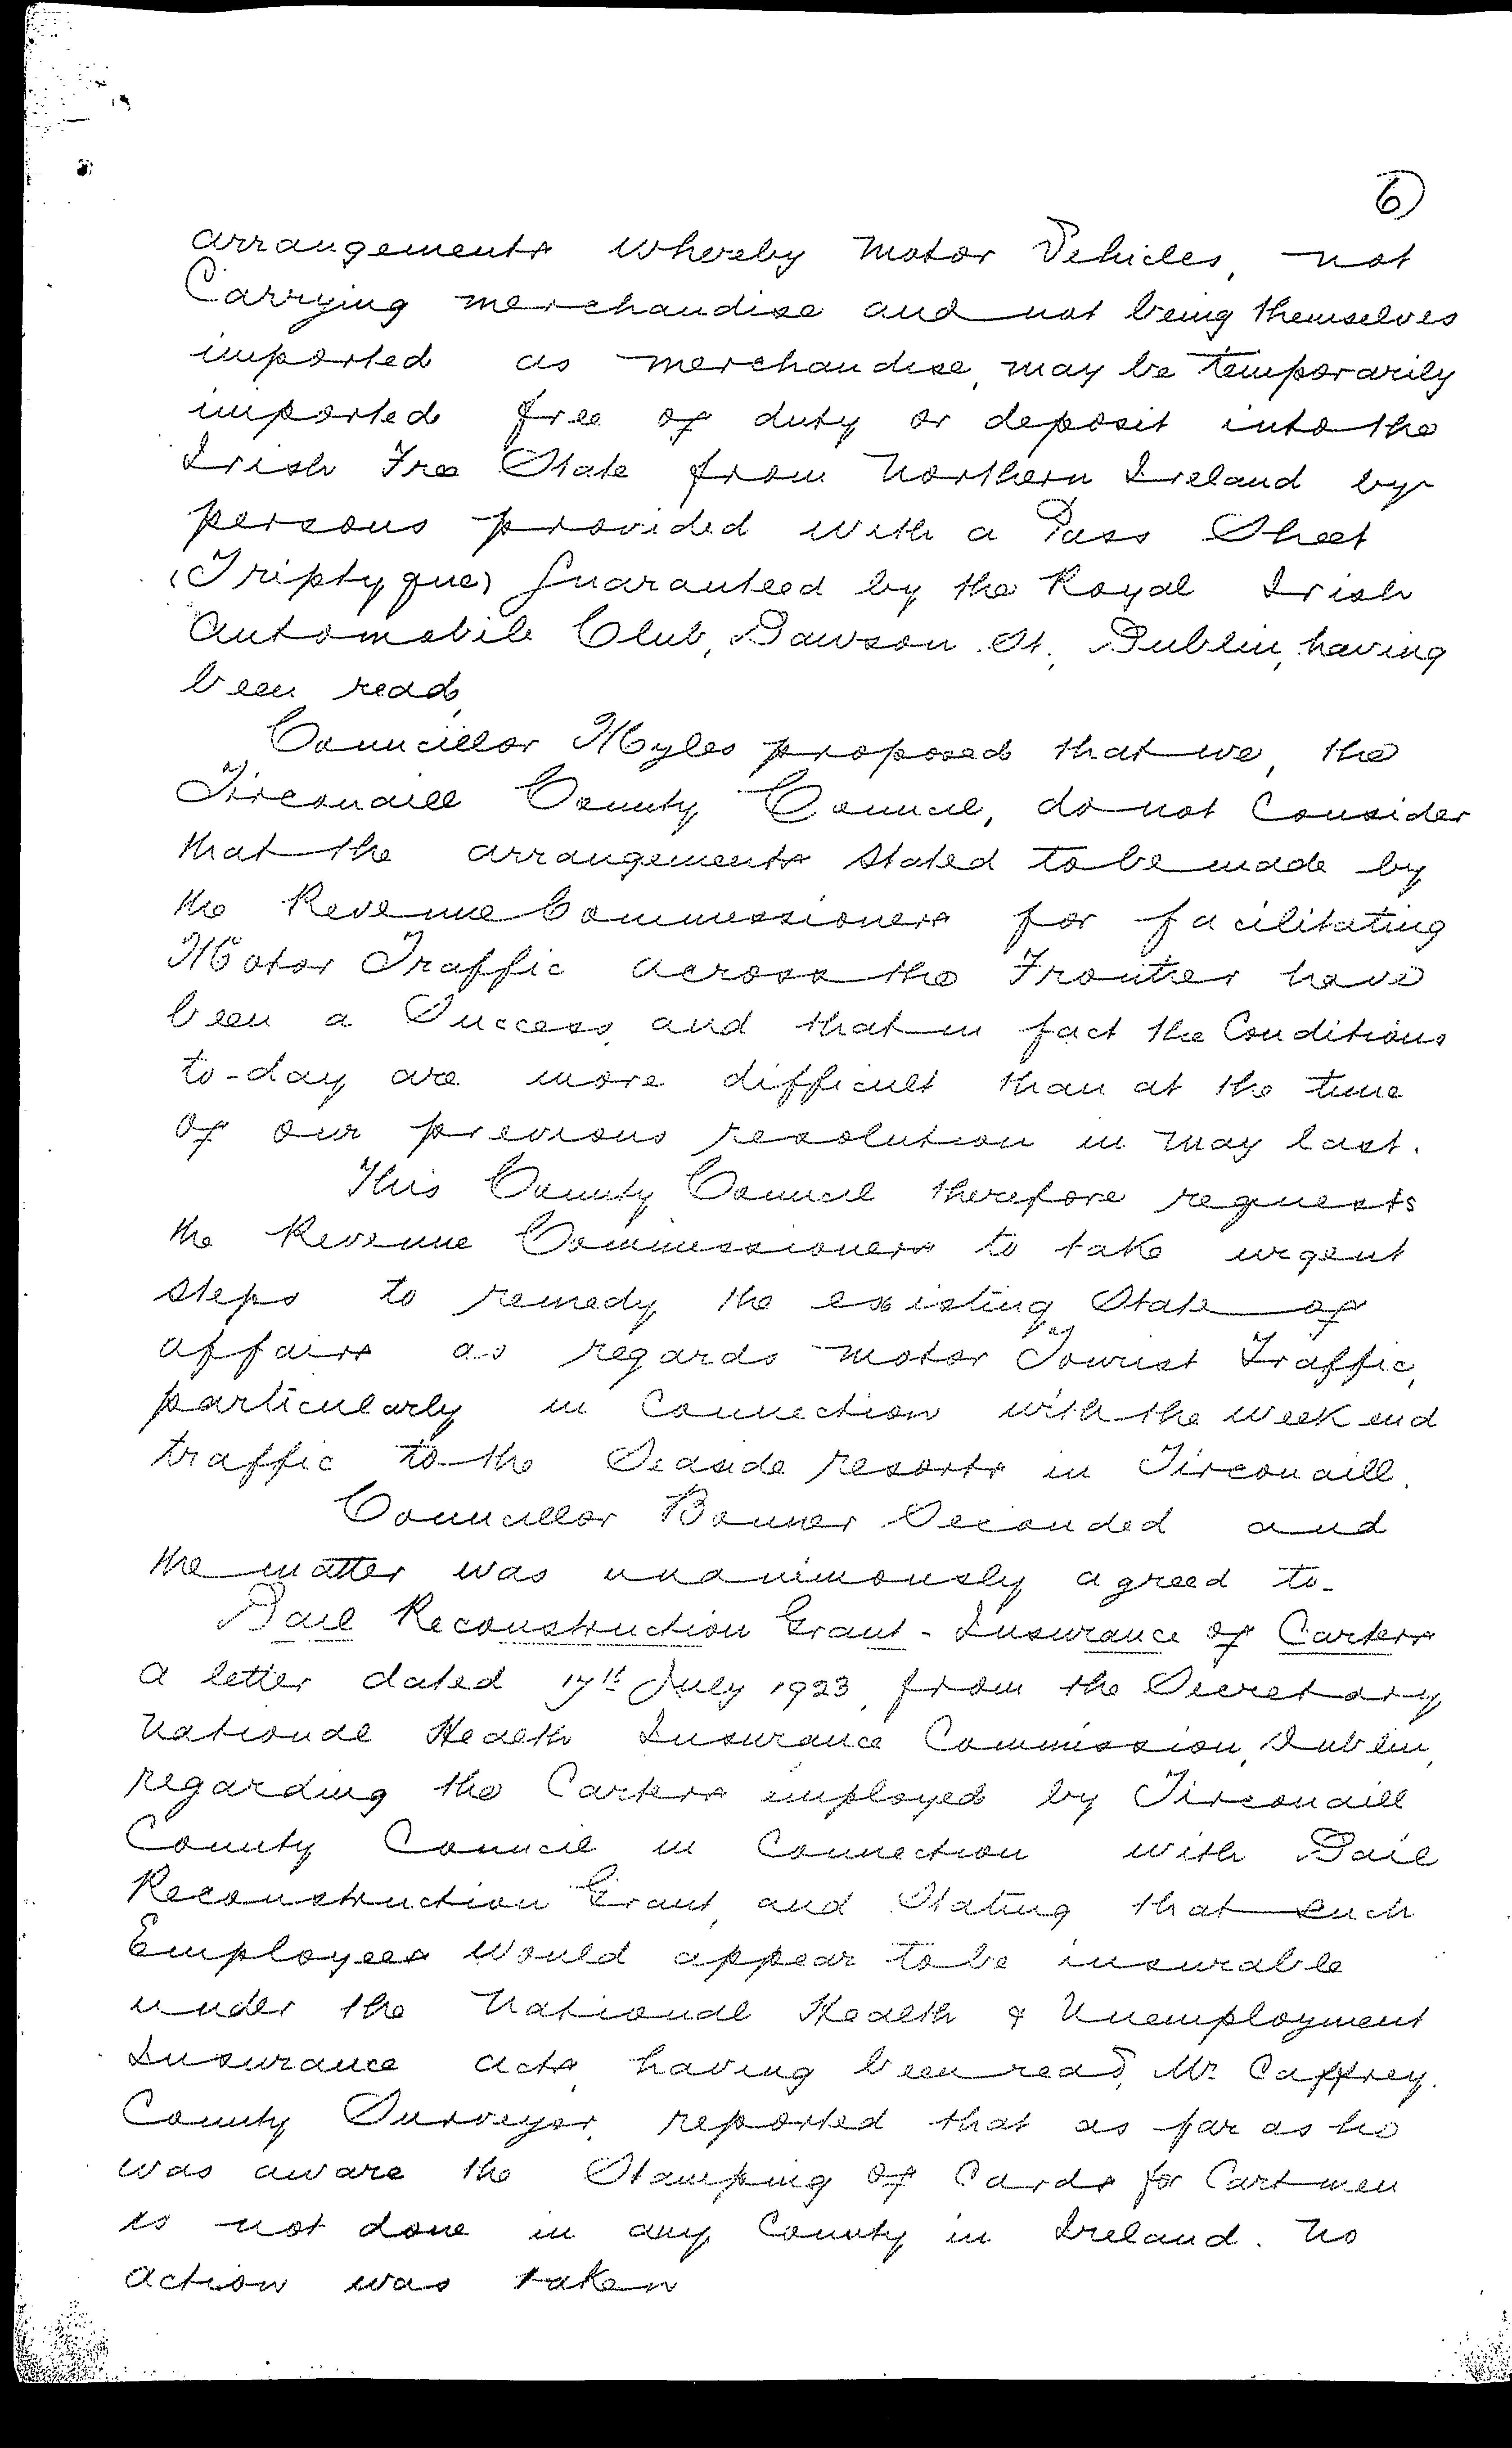 6
arrangements whereby motor Vehicles, not
Carrying merchandise and not being themselves
imported as merchandise, may be temporarily
imported free of duty or deposit into the
Irish Free State from Northern Ireland by
persons provided with a Pass Sheet
(Triptyque) guaranteed by the Royal Irish
Automobile Club, Dawson St., Dublin, having
been read,
Councillor Myles proposed that we, the
Tirconaill County Council, do not Consider
that the arrangements stated to be made by
the Revenue Commissioners for facilitating
Motor Traffic across the Frontier have
been a Success, and that in fact the Conditions
to-day are more difficult than at the time
of our previous resolution in May last.
This County Council therefore requests
the Revenue Commissioners to take urgent
steps to remedy the existing State of
affairs as regards motor Tourist Traffic,
particularly in Connection with the week end
traffic to the Seaside resorts in Tirconaill.
Councillor Bonner Seconded and
the matter was unanimously agreed to-
Dail Reconstruction Grant - Insurance of Carters
A letter dated 17th July 1923, from the Secretary
National Health Insurance Commission, Dublin,
regarding the Carters employed by Tirconaill
County Council in Connection with Dail
Reconstruction Grant, and Stating that such
Employees would appear to be insurable
under the National Health & Unemployment
Insurance Acts, having been read, Mr Caffrey.
County Surveyor, reported that as far as he
was aware the Stamping of Cards for Cartmen
is not done in any County in Ireland. No
action was taken